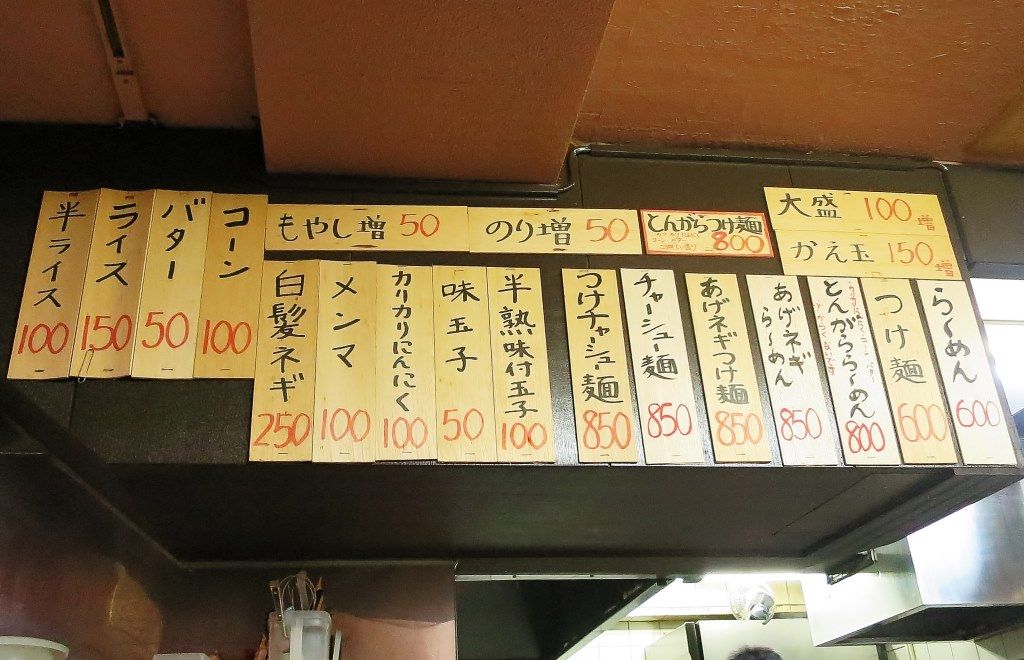 大盛 100増
かえ玉 150増
とんがらつけ麺
800
のり増 50
もやし増 50
コーン 100
バター 50
ライス 150
半ライス 100
らーめん 600
つけ麺 600
とんがららーめん 800
あげネギ
らーめん
850
あげネギつけ麺 850
チャーシュー麺 850
つけチャーシュー麺 850
半熟味付玉子 100
味玉子 50
カリカリにんにく 100
メンマ 100
白髪ネギ 250